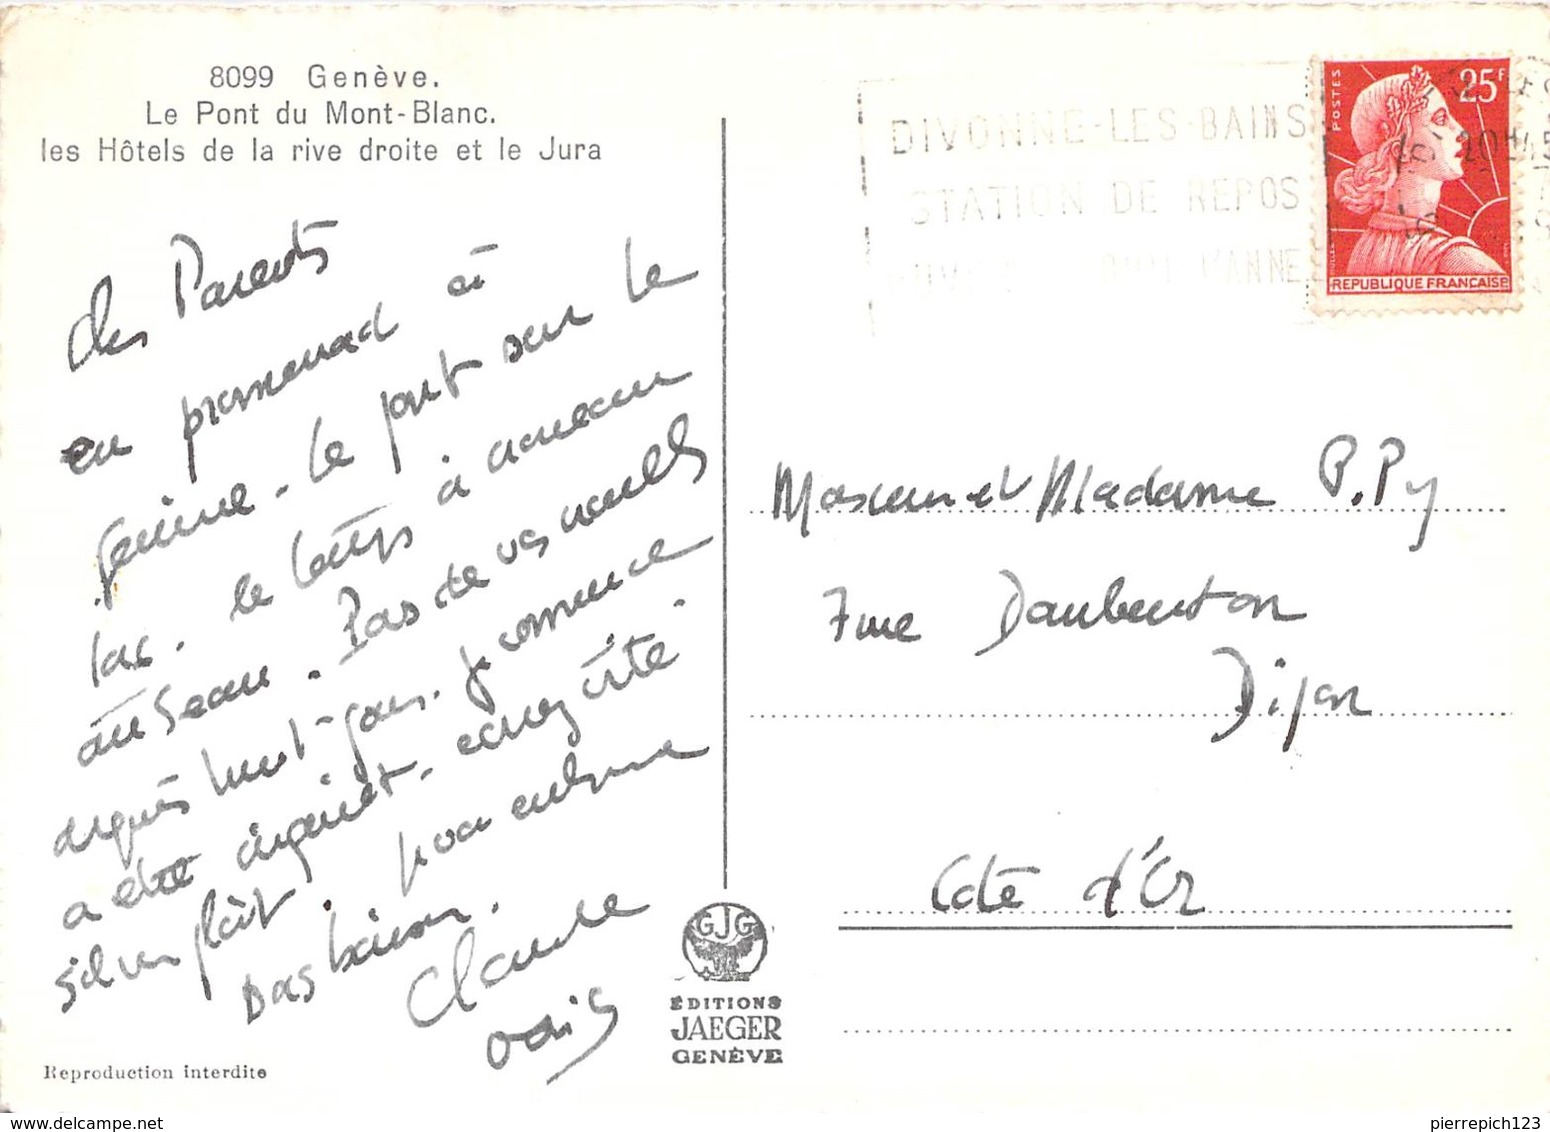 8099 Genève.
Le Pont du Mont-Blanc.
les Hôtels de la rive droite et le Jura
Chers Parents
en promenad à
Genève - le pont sur le
lac. le temps à nouveau
au beau. Pas de vos nouvelles
depuis huit jours. Je commence
a être inquièt. écrivez vite
s'il vous plaît. pour
Bas baisers.
Claude
DIVONNE-LES-BAINS
STATION DE REPOS
L'ANNE
POSTES
25F
20H45
MULLER
REPUBLIQUE FRANÇAISE
Monsieur et Madame P. Py
7 rue Daubenton
Dijon
Côte d'Or
GJG
ÉDITIONS
JAEGER
GENÈVE
Reproduction interdite
pierrepich123